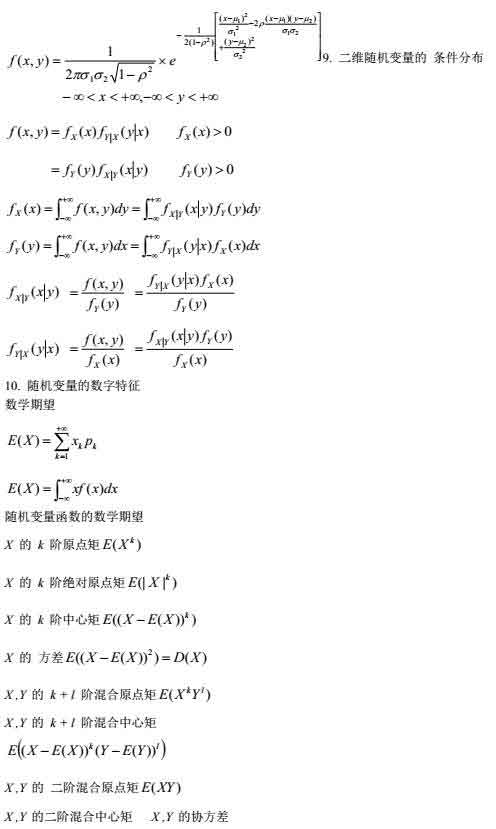 f(x, y) = \frac{1}{2\pi\sigma_1\sigma_2\sqrt{1-\rho^2}} \times e^{-\frac{1}{2(1-\rho^2)}\left[\frac{(x-\mu_1)^2}{\sigma_1^2}-2\rho\frac{(x-\mu_1)(y-\mu_2)}{\sigma_1\sigma_2}+\frac{(y-\mu_2)^2}{\sigma_2^2}\right]} 9. 二维随机变量的 条件分布
-∞ < x < +∞, -∞ < y < +∞
f(x, y) = f_X(x) f_{Y|X}(y|x)   f_X(x) > 0
= f_Y(y) f_{X|Y}(x|y)   f_Y(y) > 0
f_X(x) = \int_{-∞}^{+∞} f(x, y)dy = \int_{-∞}^{+∞} f_{X|Y}(x|y) f_Y(y)dy
f_Y(y) = \int_{-∞}^{+∞} f(x, y)dx = \int_{-∞}^{+∞} f_{Y|X}(y|x) f_X(x)dx
f_{X|Y}(x|y) = \frac{f(x, y)}{f_Y(y)} = \frac{f_{Y|X}(y|x) f_X(x)}{f_Y(y)}
f_{Y|X}(y|x) = \frac{f(x, y)}{f_X(x)} = \frac{f_{X|Y}(x|y) f_Y(y)}{f_X(x)}
10. 随机变量的数字特征
数学期望
E(X) = \sum_{k=1}^{+∞} x_k p_k
E(X) = \int_{-∞}^{+∞} xf(x)dx
随机变量函数的数学期望
X 的 k 阶原点矩 E(X^k)
X 的 k 阶绝对原点矩 E(| X |^k)
X 的 k 阶中心矩 E((X − E(X))^k)
X 的 方差 E((X − E(X))^2) = D(X)
X ,Y 的 k + l 阶混合原点矩 E(X^k Y^l)
X ,Y 的 k + l 阶混合中心矩
E((X − E(X))^k (Y − E(Y))^l)
X ,Y 的 二阶混合原点矩 E(XY)
X ,Y 的二阶混合中心矩   X ,Y 的协方差